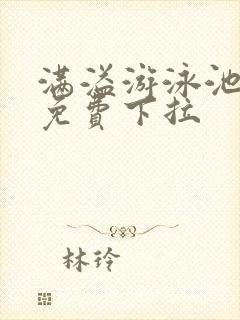 满溢游泳池
免費下拉
林玲